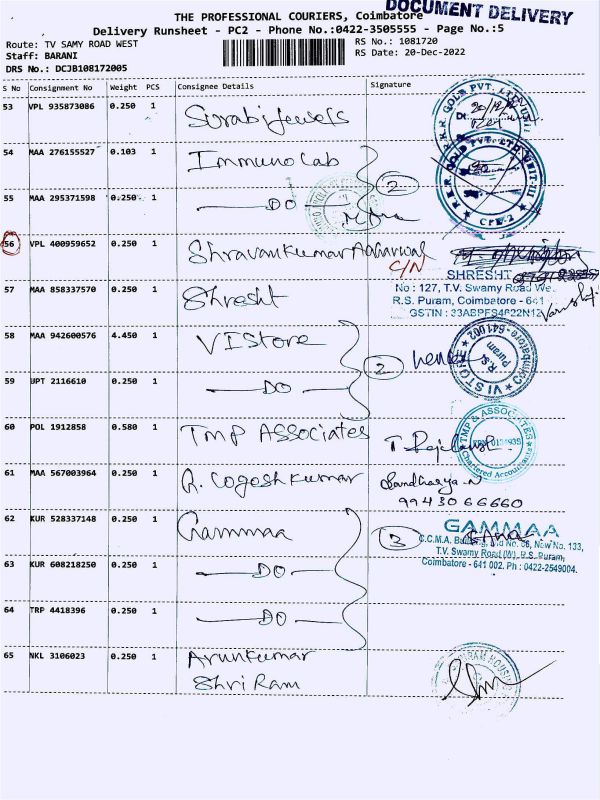 DOCUMENT DELIVERY
THE PROFESSIONAL COURIERS, Coimbatore
Delivery Runsheet - PC2 - Phone No.:0422-3505555 - Page No.:5
Route: TV SAMY ROAD WEST
Staff: BARANI
DRS No.: DCJB108172005
RS No.: 1081720
RS Date: 20-Dec-2022
S No Consignment No Weight PCS Consignee Details Signature
53 VPL 935873086 0.250 1 Surabi Jewels
54 MAA 276155527 0.103 1 Immuno Lab
55 MAA 295371598 0.250 1 DO 2
56 VPL 400959652 0.250 1 Shravankumar Agharwal
C/N
57 MAA 858337570 0.250 1 Shresht
SHRESHT
No : 127, T.V. Swamy Road We
R.S. Puram, Coimbatore - 641
GSTIN : 33ABPFS4622N12
58 MAA 942600576 4.450 1 VI Store
59 UPT 2116610 0.250 1 DO 2
VI STORE Coimbatore-641002
R.S. Puram
60 POL 1912858 0.580 1 TMP Associates
TMP & ASSOCIATES
Chartered Accountants
61 MAA 567003964 0.250 1 R. Logoshkumar
9943066660
62 KUR 528337148 0.250 1 Gammaa 3
GAMMAA
C.C.M.A. Building, Old No. 66, New No. 133,
T.V. Swamy Road (W), R.S. Puram,
Coimbatore - 641 002. Ph : 0422-2549004.
63 KUR 608218250 0.250 1 DO
64 TRP 4418396 0.250 1 DO
65 NKL 3106023 0.250 1 Arunkumar
Shri Ram